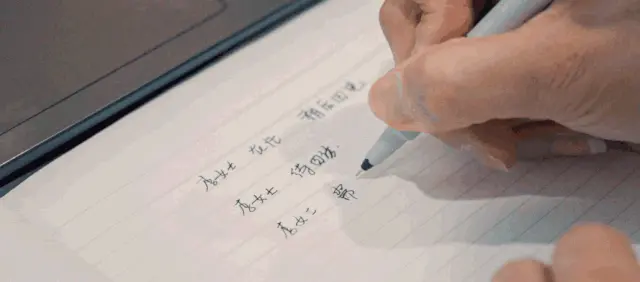 唐女士 在忙 稍后回电
唐女士 待回访.
唐女士